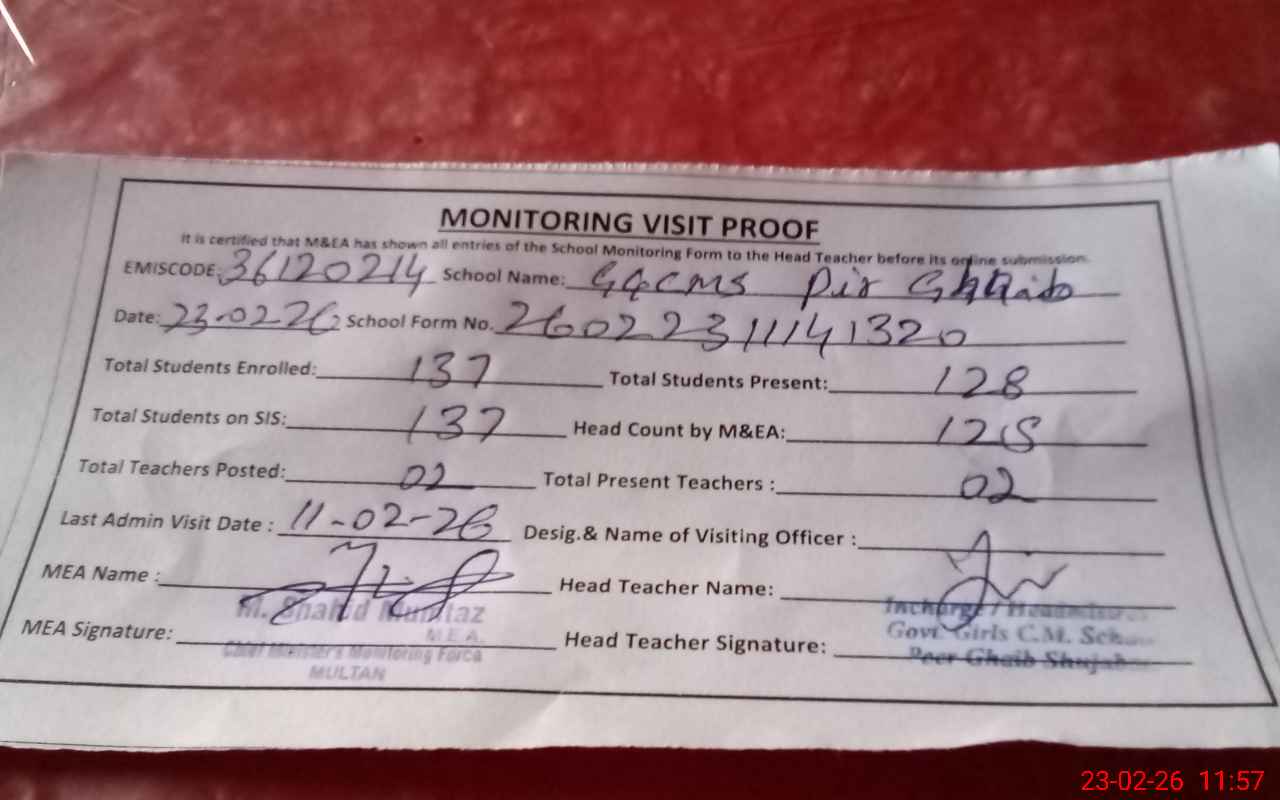 MONITORING VISIT PROOF
It is certified that M&EA has shown all entries of the School Monitoring Form to the Head Teacher before its online submission.
EMISCODE: 36120214 School Name: GGCMS Pir Ghaib
Date: 23-02-26 School Form No. 26022311141320
Total Students Enrolled: 137 Total Students Present: 128
Total Students on SIS: 137 Head Count by M&EA: 128
Total Teachers Posted: 02 Total Present Teachers : 02
Last Admin Visit Date : 11-02-26 Desig.& Name of Visiting Officer :
MEA Name : Head Teacher Name:
M. Shahid Mumtaz Incharge / Headmistress
M.E.A. Govt. Girls C.M.
MEA Signature: Head Teacher Signature:
Chief Minister's Monitoring Force Peer Ghaib
MULTAN
23-02-26 11:57